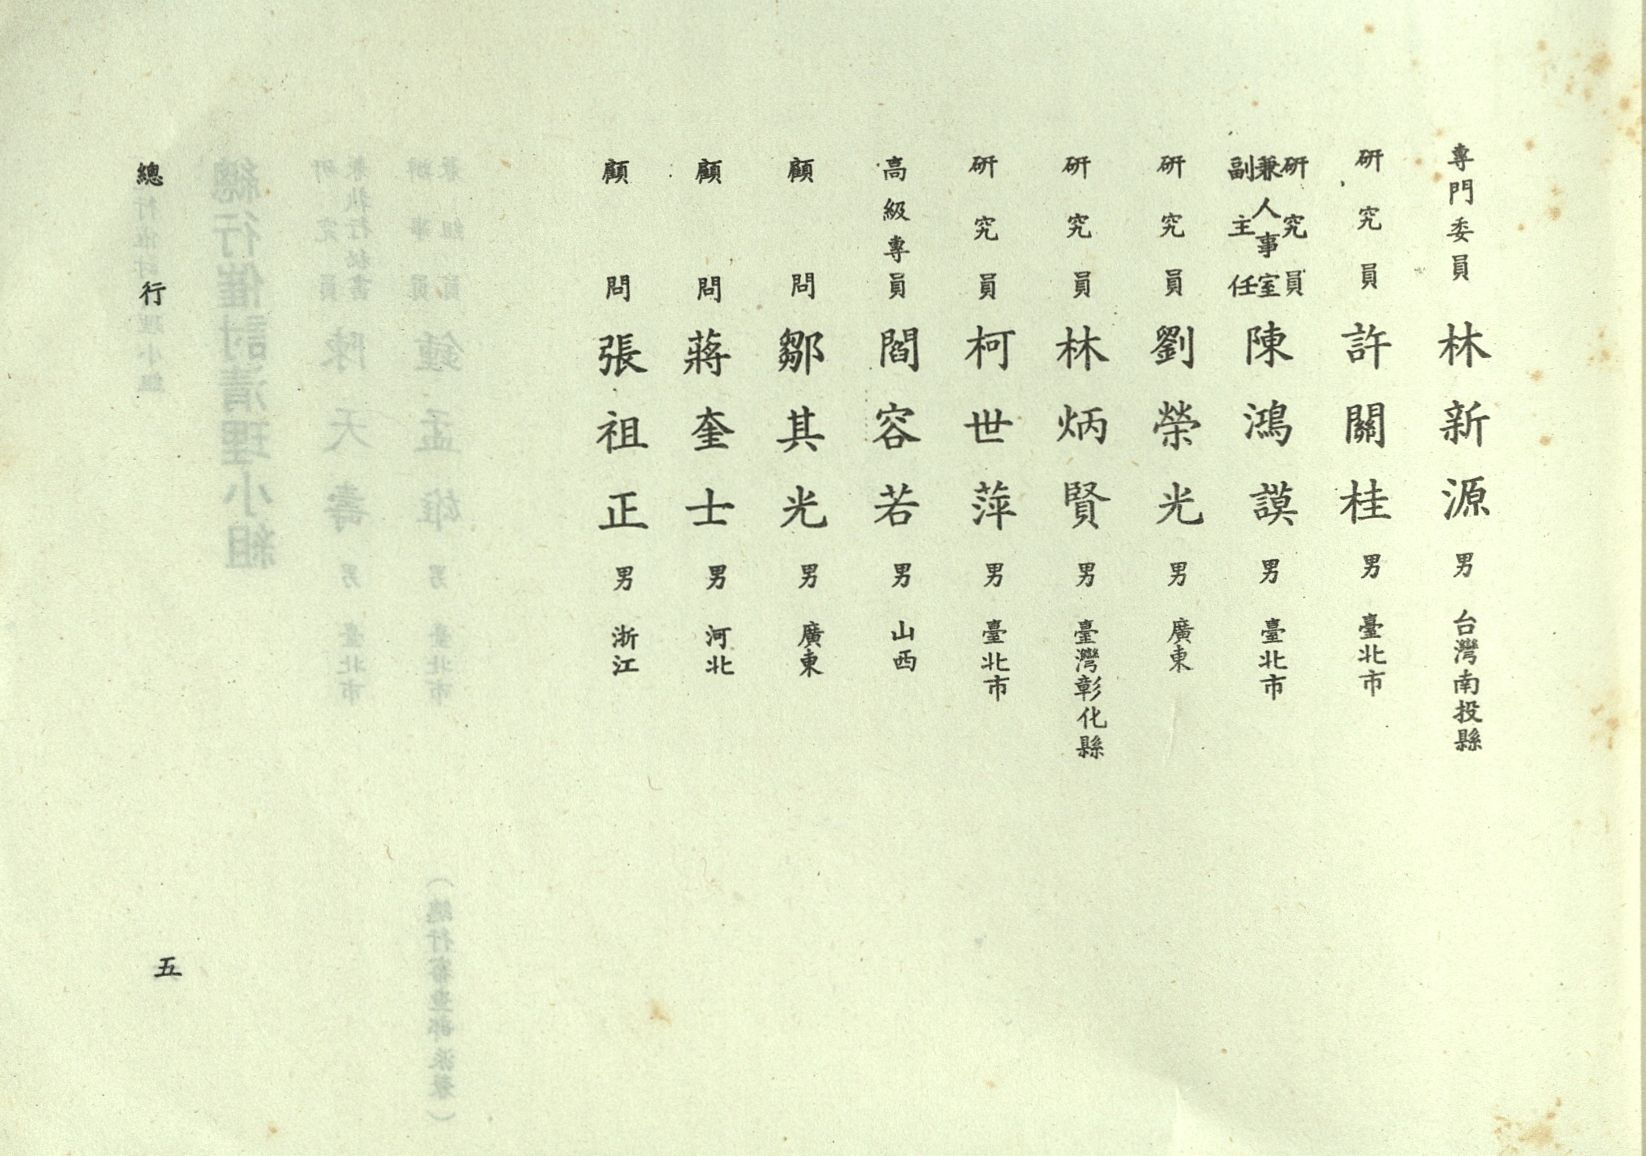 專門委員 林新源 男 台灣南投縣
研究員 許關桂 男 臺北市
研究員兼人事室副主任 陳鴻謨 男 臺北市
研究員 劉榮光 男 廣東
研究員 林炳賢 男 臺灣彰化縣
研究員 柯世萍 男 臺北市
高級專員 閻容若 男 山西
顧問 鄒其光 男 廣東
顧問 蔣奎士 男 河北
顧問 張祖正 男 浙江
總行 五